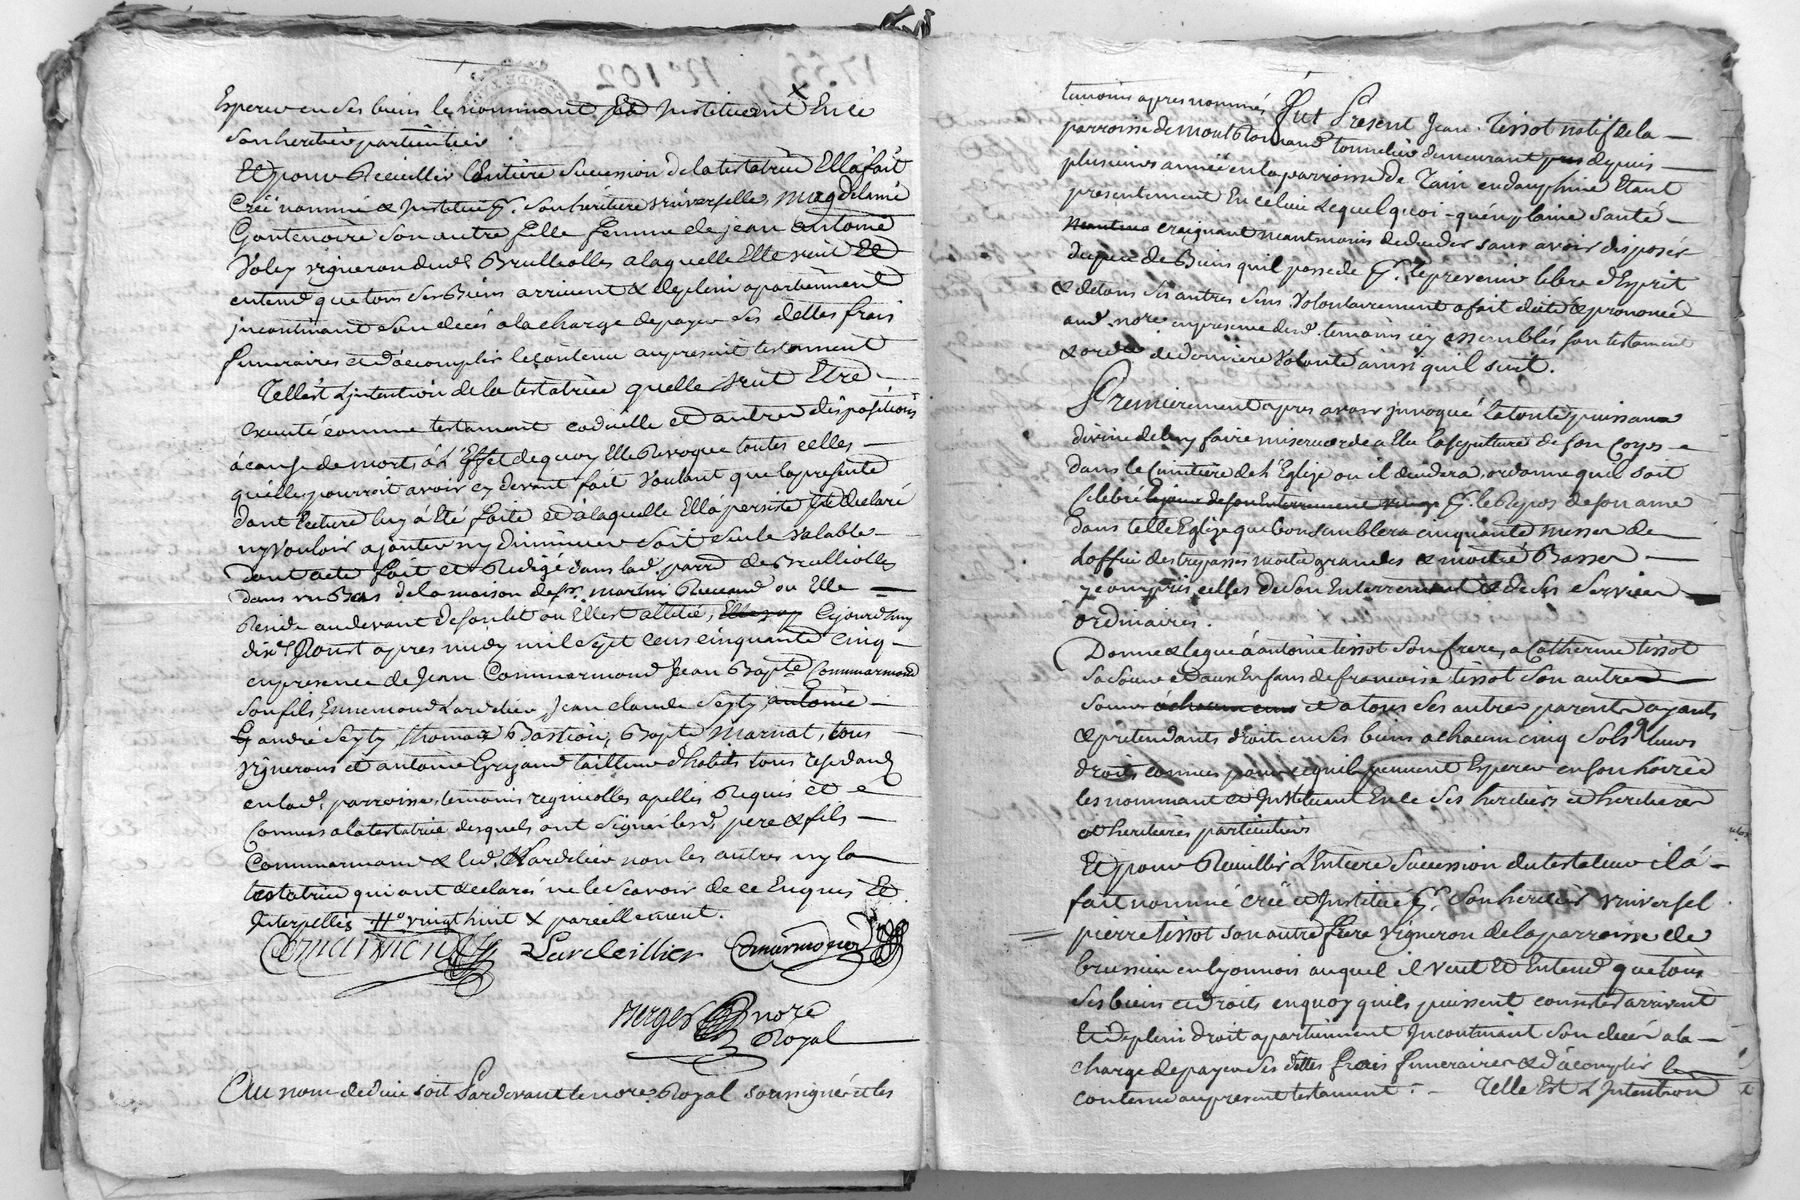 Esperer en ses biens les nommant et Instituent En ce
son heritier particulier
Et pour Recueillir l'Entière Succession de la testatrice Ell'a fait
Créé nommé & Institué pr. son héritiere vniverselle, Magdelainé
Gontenoire son autre fille femme de jean Antoine
Voley vigneron dud. Brullioles a laquelle Elle veut Et
entend que tous ses Biens arrivent & de plein apartiennent
jncontinant son decès a la charge de payer ses dettes frais
funeraires et d'acomplir le contenu au present testament
Tell'est L'jntention de la testatrice qu'elle veut Etre
executé comme testament codicille et d'autres dispositions
à cause de morts à L'Effet de quoy Elle Revoque toutes celles
qu'elle pourroit avoir cy devant fait Voulant que la presente
dont lecture luy à Eté faite et à laquelle Ell'a persisté Et declaré
ny vouloir ajouter ny diminuer soit seule Valable
Dont acte fait et Redigé dans lad. parre. de Brullioles
dans vn Bas de la maison de sr. martin où Elle
Reside au devant de son lit ou Ell'est allitée, Cejourd'huy
dixe. Aoust apres midy mil sept cens cinquante cinq
en presence de Jean Commarmond Jean Bapte. Commarmond
son fils, Ennemond Lardelier, Jean claude Seyty, antoine
andré Seyty, thomas Bastion, Bapte Marnat, tous
vignerons et antoine Grizaud tailleur d'habits tous residants
en lad. parroisse, temoins regnicolles apellés Requis et
Connus a la testatrice, desquels ont signé lesd. pere & fils
Commarmond & led. Lardelier non les autres ny la
testatrice qui ont declarés ne le scavoir de ce Enquis Et
Interpellés Ho. vingt huit X pareillement.
Comarmond Lardeillier Comarmond
Berger nore
Royal
Au nom de dieu soit Pardevant le nore. Royal soussigné et les
temoins apres nommés Fut Present Jean Tissot natif de la
parroisse de Montromand tonnelier demeurant depuis
plusieurs année en la parroisse de Tain en dauphiné Etant
presentement En celuie Lequel quoi-qu'en plaine santé
craignant neantmoins de deceder sans avoir disposés
du peu de Biens qu'il possede pr. le prevenir libre d'Esprit
& de tous ses autres sens Volontairement a fait dicté & prononcé
aud. nore. en presence desd. temoins icy assemblés son testament
& ordre de derniere Volonté ainsi qu'il suit.
Premierement apres avoir jnvoqué la toute puissance
divine de luy faire misericorde a Elu la sepulture de son Corps
dans le Cimitiere de L'Eglize ou il decedera, ordonne qu'il soit
Celebré le jour de son Enterrement pr. le Repos de son ame
dans telle Eglize que bon semblera cinquante messes de
L'office des trepassés moitié grandes & moitié Basses
y compris celles de son Enterrement & de ses services
ordinaires.
Donne & legue à antoine tissot son frere, a Catherine tissot
sa soeur et aux Enfans de francoise tissot son autre
soeur et a tous ses autres parents ayants
& pretendants droits en ses biens a chacun cinq sols pr leurs
droits connus pour ce qu'ils peuvent Esperer en son hoirie
les nommant & Instituant En ce ses heritiers et heritieres
et heritiers particuliers
Et pour Recuillir L'Entiere Succession du testateur il à
fait nommé créé et Institué pr. son heritier Vniversel
pierre tissot son autre frere Vigneron de la parroisse de
brussieu en lyonnois auquel il Veut Et Entend que tous
ses biens et droits en quoy qu'ils puissent consister arrivent
Et de plein droit apartiennent Incontinant son decés a la
charge de payer ses dettes frais funeraires & d'acomplir le
contenu au present testament :- Telle Est L'Intention